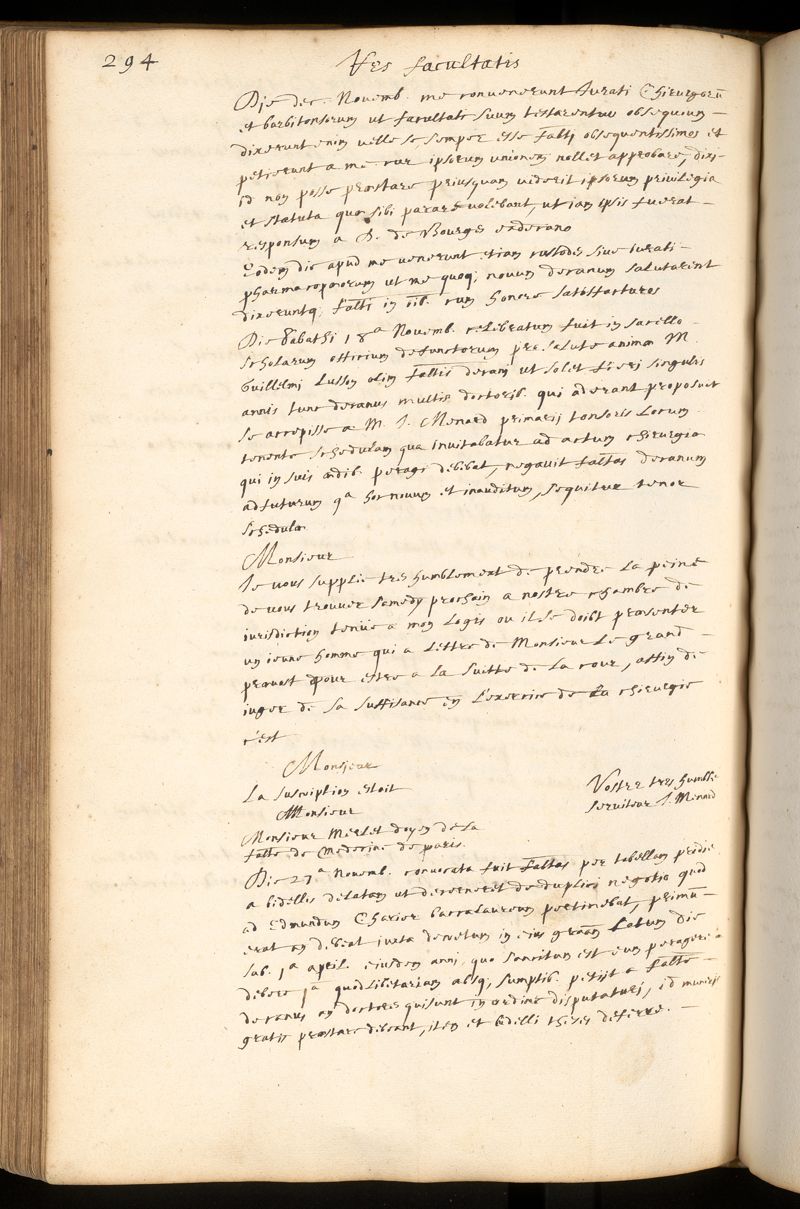 294 Res facultatis
Die dec. Novemb. me convenerunt Jurati Chirurgorū
et barbitonsorum ut facultati suum testarentur obsequium –
dixerunt enim velle se semper esse Falti obsequentissimos et
petierunt a me cur ipsorum unionem nollet approbare, dixi
id non posse praestare priusquam viderit ipsorum privilegia
et statuta quae sibi parare volebant, ut iam ipsis fuerat –
responsum a D. de Bourges exdecano
Eodem die apud me venerunt etiam custodes sive iurati –
pharmacopoeorum ut me quoq; novum decanum salutarent
dixeruntq; Falti in iib. cum honore satisfacturos
Die Sabathi 18ᵃ Novemb. celebratum fuit in sacello –
scholarum officium defunctorum pro salute animae M.
Guillelmi Lusson olim Faltis decani ut solet fieri singulis
annis tunc decanus multis doctorib. qui aderant proposuit
se accepisse a M. J. Menard primarij tonsoris locum
tenente schedulam qua invitabatur ad actum chirurgiae
qui in suis aedib. peragi debebat, negavit faltas decanum
adfuturum qᵃ hoc novum et inauditum, sequitur tenor
schedulae
Monsieur
Je vous supplie tres humblement de prendre la peine
de vous trouver samedy prochain a nostre chambre de
iurisdiction tenüe a mon logis ou il se doibt praesenter
un ieune homme qui a lettre de Monsieur le grand –
prevost pour estre a la suitte de la cour, affin de
iuger de sa suffisance en l'exercice de la chirurgie
c'est
Monsieur
La suscription estoit
Vostre tres humble
Monsieur
serviteur J. Menard
Monsieur Merlet doyen de la
falté de Medecine de paris.
Die 27ᵃ Novemb. convocata fuit Faltas per tabellam pridie
a bidellis delatam ut decerneret de duplici negotio quod
ad Edmundum Charier baccalaureum pertinebat, primū –
erat an debeat iuxta decretum in eius grãm latum die
sab. 1ᵃ april. eiusdem anni quo sancitum est eum peragere
debere 1ᵃ quodlibetariam absq; sumptib. petijt a Falte –
decanus an doctores qui sunt in ordine disputaturi, id muneris
gratis praestare debeant, item et bidelli theses deferre. –